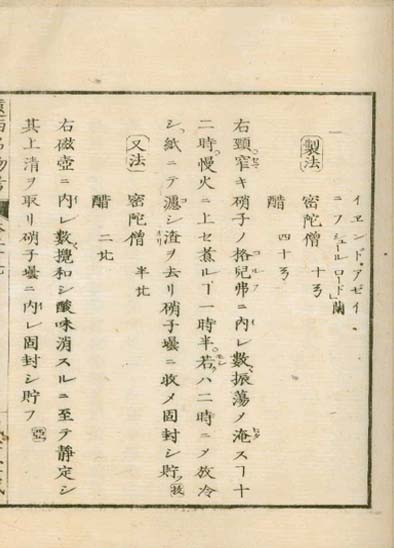 イヱンド、アゼイ、
ニフシュールロード」蘭
製法
密陀僧 十ㄋ
醋 四十ㄋ
右頸窄キ硝子ノ格兒弗ニ内レ數振蕩メ淹スヿ十
二時慢火ニ上セ煮ルヿ一時半若ハ二時ニメ放冷
シ紙ニテ濾シ渣ヲ去リ硝子壜ニ收メ固封シ貯フ
又法
密陀僧 半
醋 二
右磁壺ニ内レ數攪和シ酸味消スルニ至テ靜定シ
其上清ヲ取リ硝子壜ニ内レ固封シ貯フ